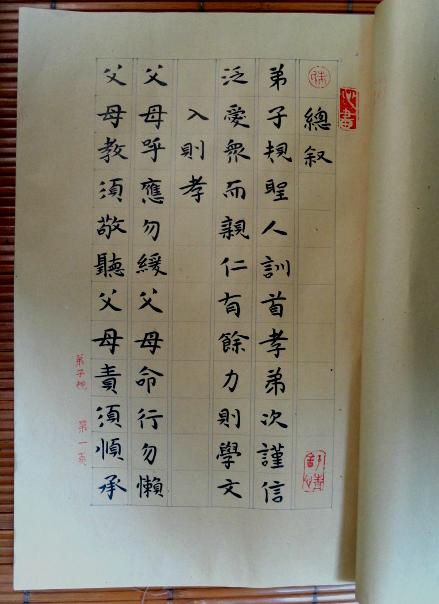 總叙
弟子規聖人訓首孝弟次謹信
泛愛衆而親仁有餘力則學文
入則孝
父母呼應勿緩父母命行勿懶
父母教須敬聽父母責須順承
弟子規 第一頁